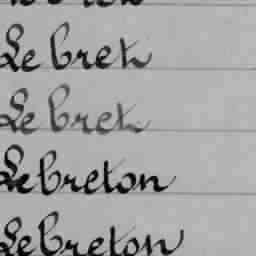 Le bret
Le bret
Lebreton
Lebreton